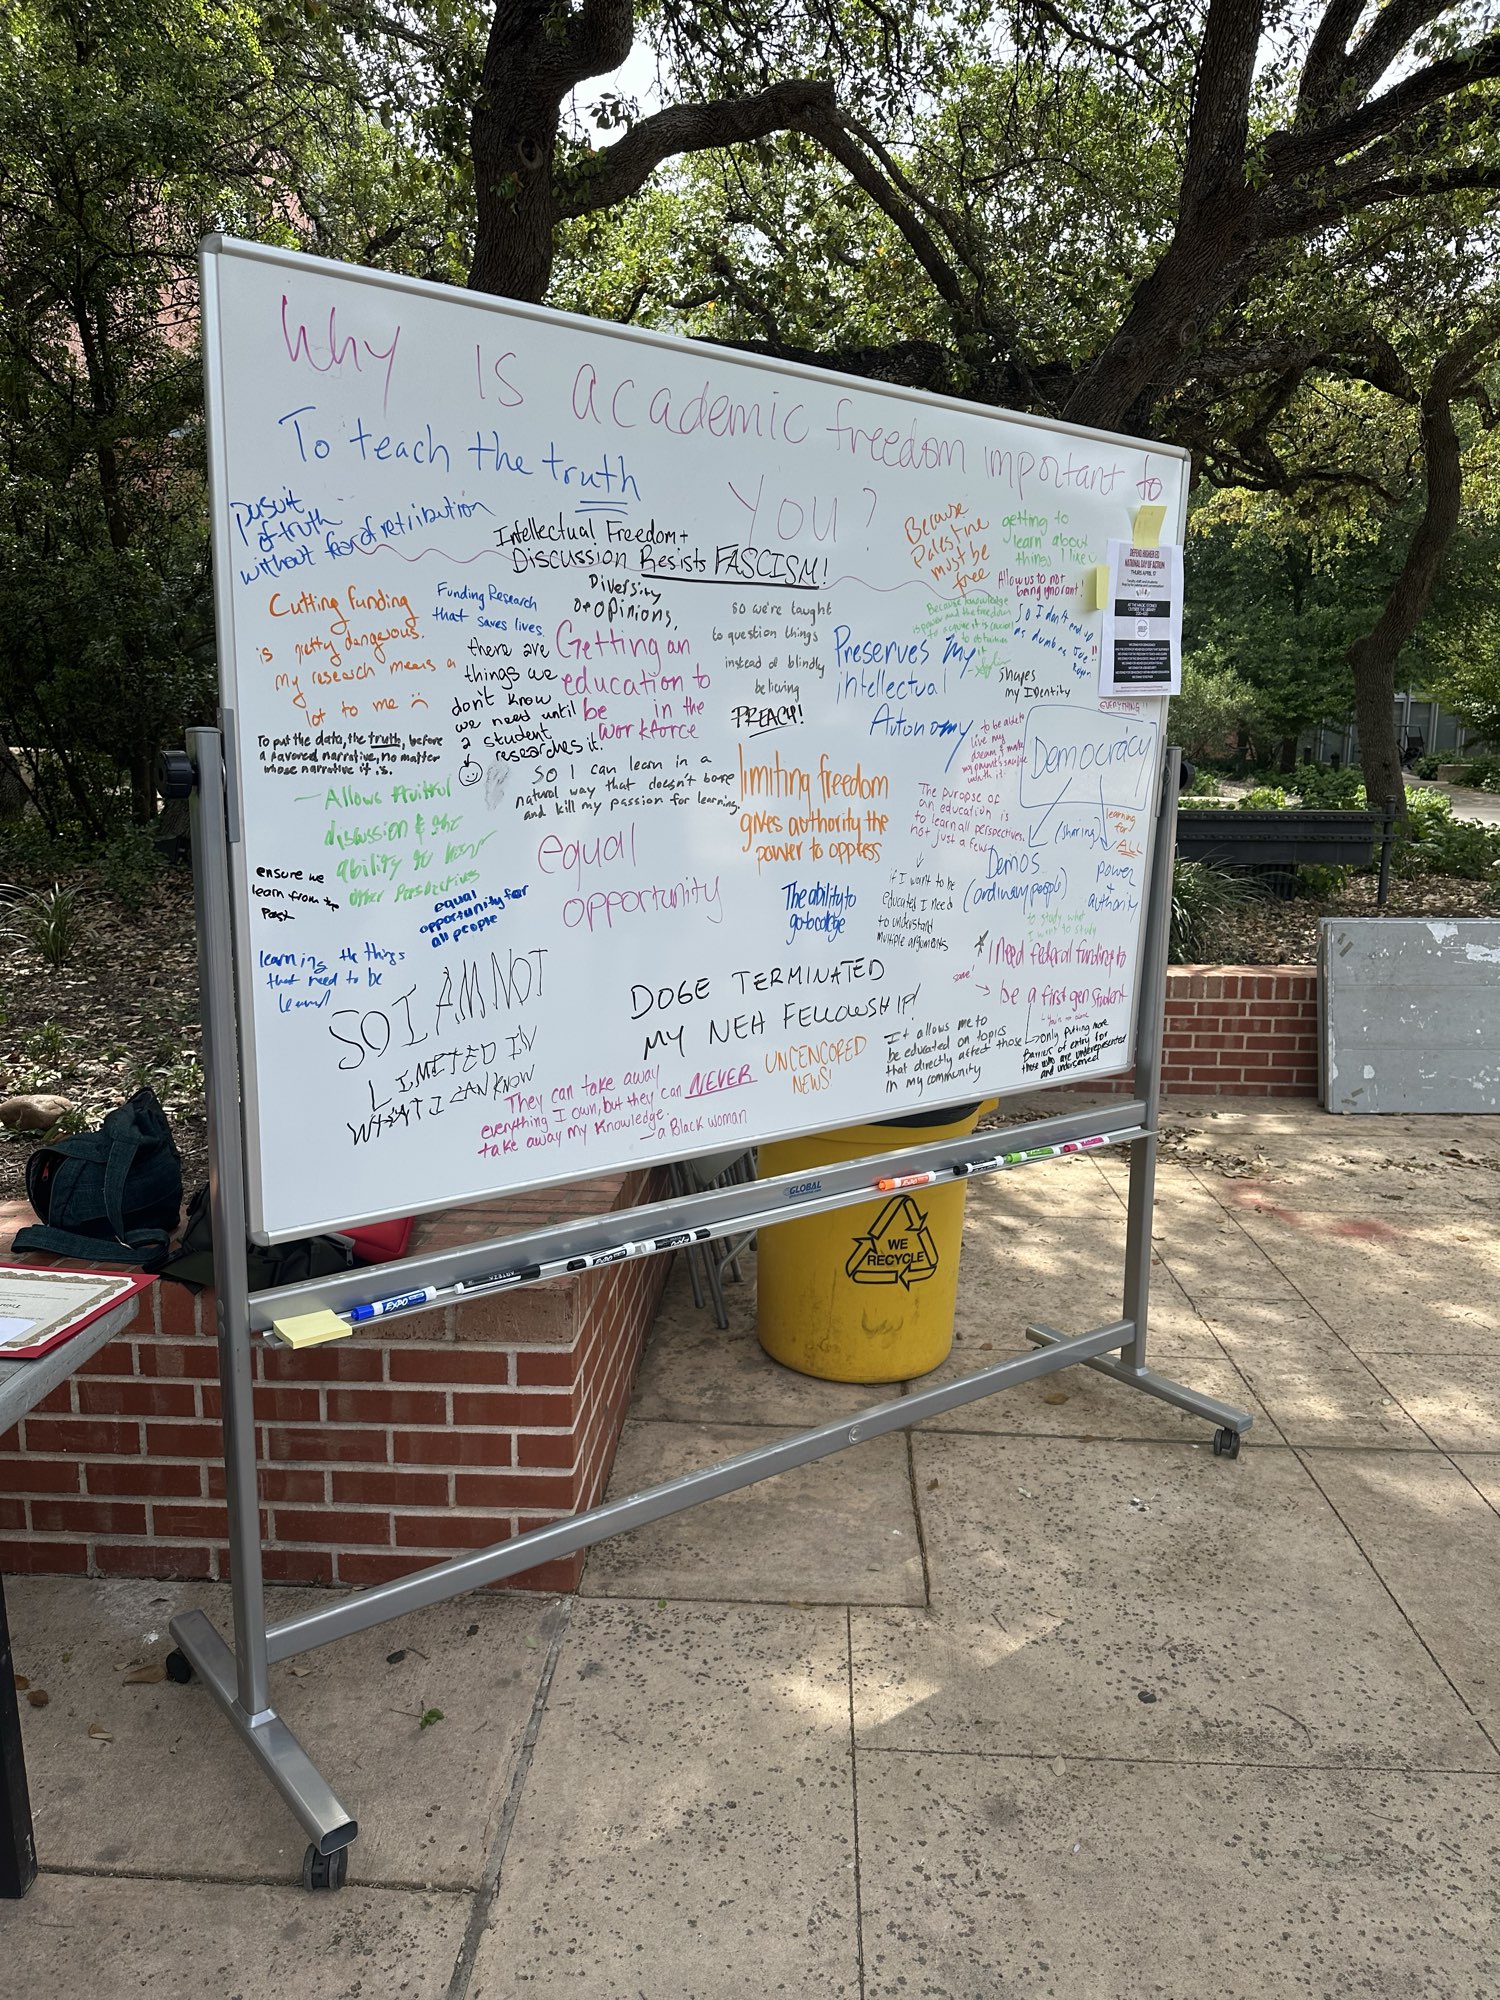 Why is academic freedom important to
you?
To teach the truth
pursuit
of truth
without fear of retribution
Intellectual Freedom +
Discussion Resists FASCISM!
Because
Palestine
must be
free
getting to
learn about
things I like
Allow us to not
being ignorant!
DEFEND HIGHER ED
NATIONAL DAY OF ACTION
THURS APRIL 17
Cutting funding
is pretty dangerous.
my research means a
lot to me
Funding Research
that saves lives.
Diversity
of opinions,
there are
things we
don't know
we need until
a student
researches it.
Getting an
education to
be in the
workforce
so we're taught
to question things
instead of blindly
believing
PREACH!
Preserves my
intellectual
Autonomy
Because knowledge
is power and the freedom
to acquire it is crucial
to obtain
So I don't end up
as dumb as Joe
Rogan
!!
Shapes
my Identity
EVERYTHING!
to be able to
live my
dream & make
my parent's sacrifice
worth it.
Democracy
(sharing)
learning
for
ALL
Demos
(ordinary people)
power
+
authority
To put the data, the truth, before
a favored narrative, no matter
whose narrative it is.
So I can learn in a
natural way that doesn't bore
and kill my passion for learning.
limiting freedom
gives authority the
power to oppress
The purpose of
an education is
to learn all perspectives,
not just a few
if I want to be
educated I need
to understand
multiple arguments
- Allows fruitful
discussion & the
ability to hear
other perspectives
ensure we
learn from the
past
equal
opportunity for
all people
equal
opportunity
The ability to
go to college
to study what
I want to study
* I need federal funding to
be a first gen student
same!
↳ You're not alone
only putting more
Barriers of entry for
those who are underrepresented
and underserved
learning the things
that need to be
learned
SO I AM NOT
LIMETED IN
WHAT I CAN KNOW
DOGE TERMINATED
MY NEH FELLOWSHIP!
UNCENCORED
NEWS!
It allows me to
be educated on topics
that directly affect those
in my community
They can take away
everything I own, but they can NEVER
take away my knowledge.
- a Black woman
GLOBAL
EXPO
WE
RECYCLE